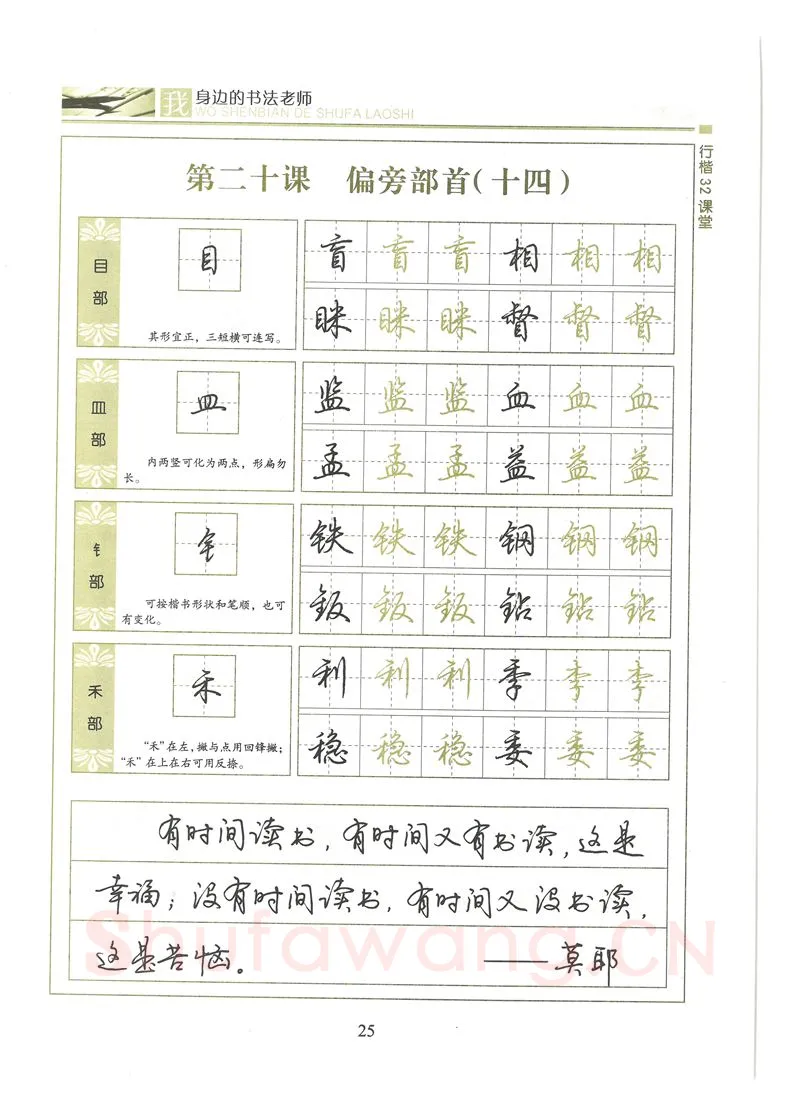 我 身边的书法老师
WO SHENBIAN DE SHUFA LAOSHI
行楷32课堂
第二十课 偏旁部首(十四)
目部
目
其形宜正，三短横可连写。
盲 盲 盲 相 相 相
眯 眯 眯 督 督 督
皿部
皿
内两竖可化为两点，形扁勿
长。
监 监 监 血 血 血
孟 孟 孟 益 益 益
钅部
钅
可按楷书形状和笔顺，也可
有变化。
铁 铁 铁 钢 钢 钢
钣 钣 钣 钻 钻 钻
禾部
禾
“禾”在左，撇与点用回锋撇；
“禾”在上在右可用反捺。
利 利 利 季 季 季
稳 稳 稳 委 委 委
有时间读书，有时间又有书读，这是
幸福；没有时间读书，有时间又没书读，
这是苦恼。 ——莫耶
Shufawang.CN
25